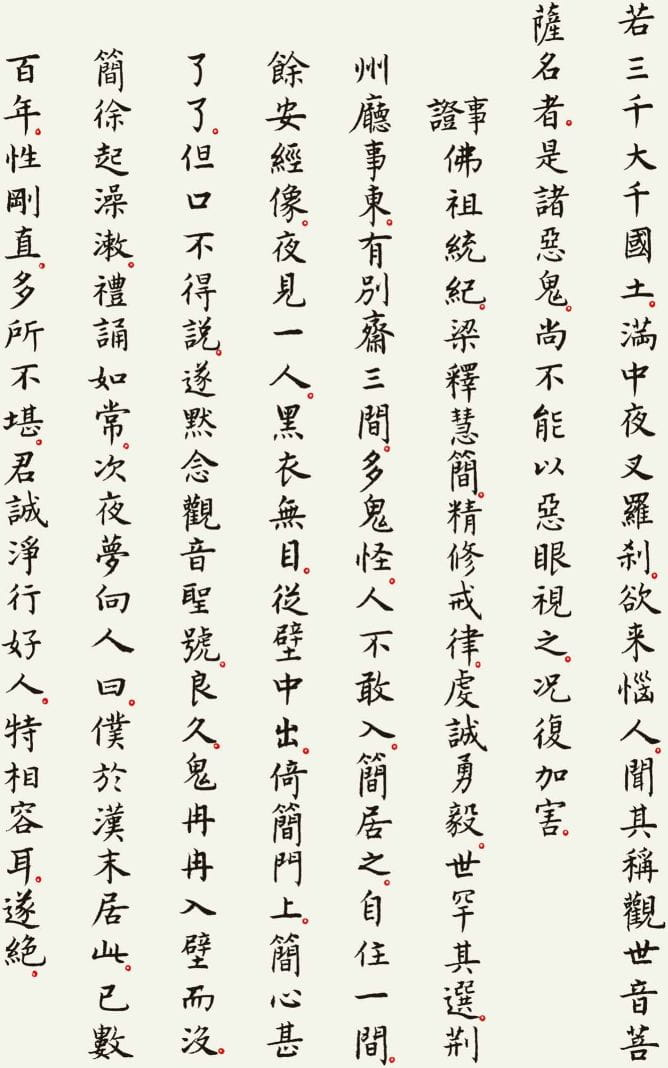 若三千大千國土。滿中夜叉羅剎。欲来惱人。聞其稱觀世音菩
薩名者。是諸惡鬼。尚不能以惡眼視之。况復加害。
事證佛祖統紀。梁釋慧簡。精修戒律。虔誠勇毅。世罕其選。荆
州廳事東。有別齋三間。多鬼怪。人不敢入。簡居之。自住一間。
餘安經像。夜見一人。黑衣無目。從壁中出。倚簡門上。簡心甚
了了。但口不得説。遂默念觀音聖號。良久。鬼冉冉入壁而沒。
簡徐起澡漱。禮誦如常。次夜夢向人曰。僕於漢末居此。已數
百年。性剛直。多所不堪。君誠淨行好人。特相容耳。遂絕。